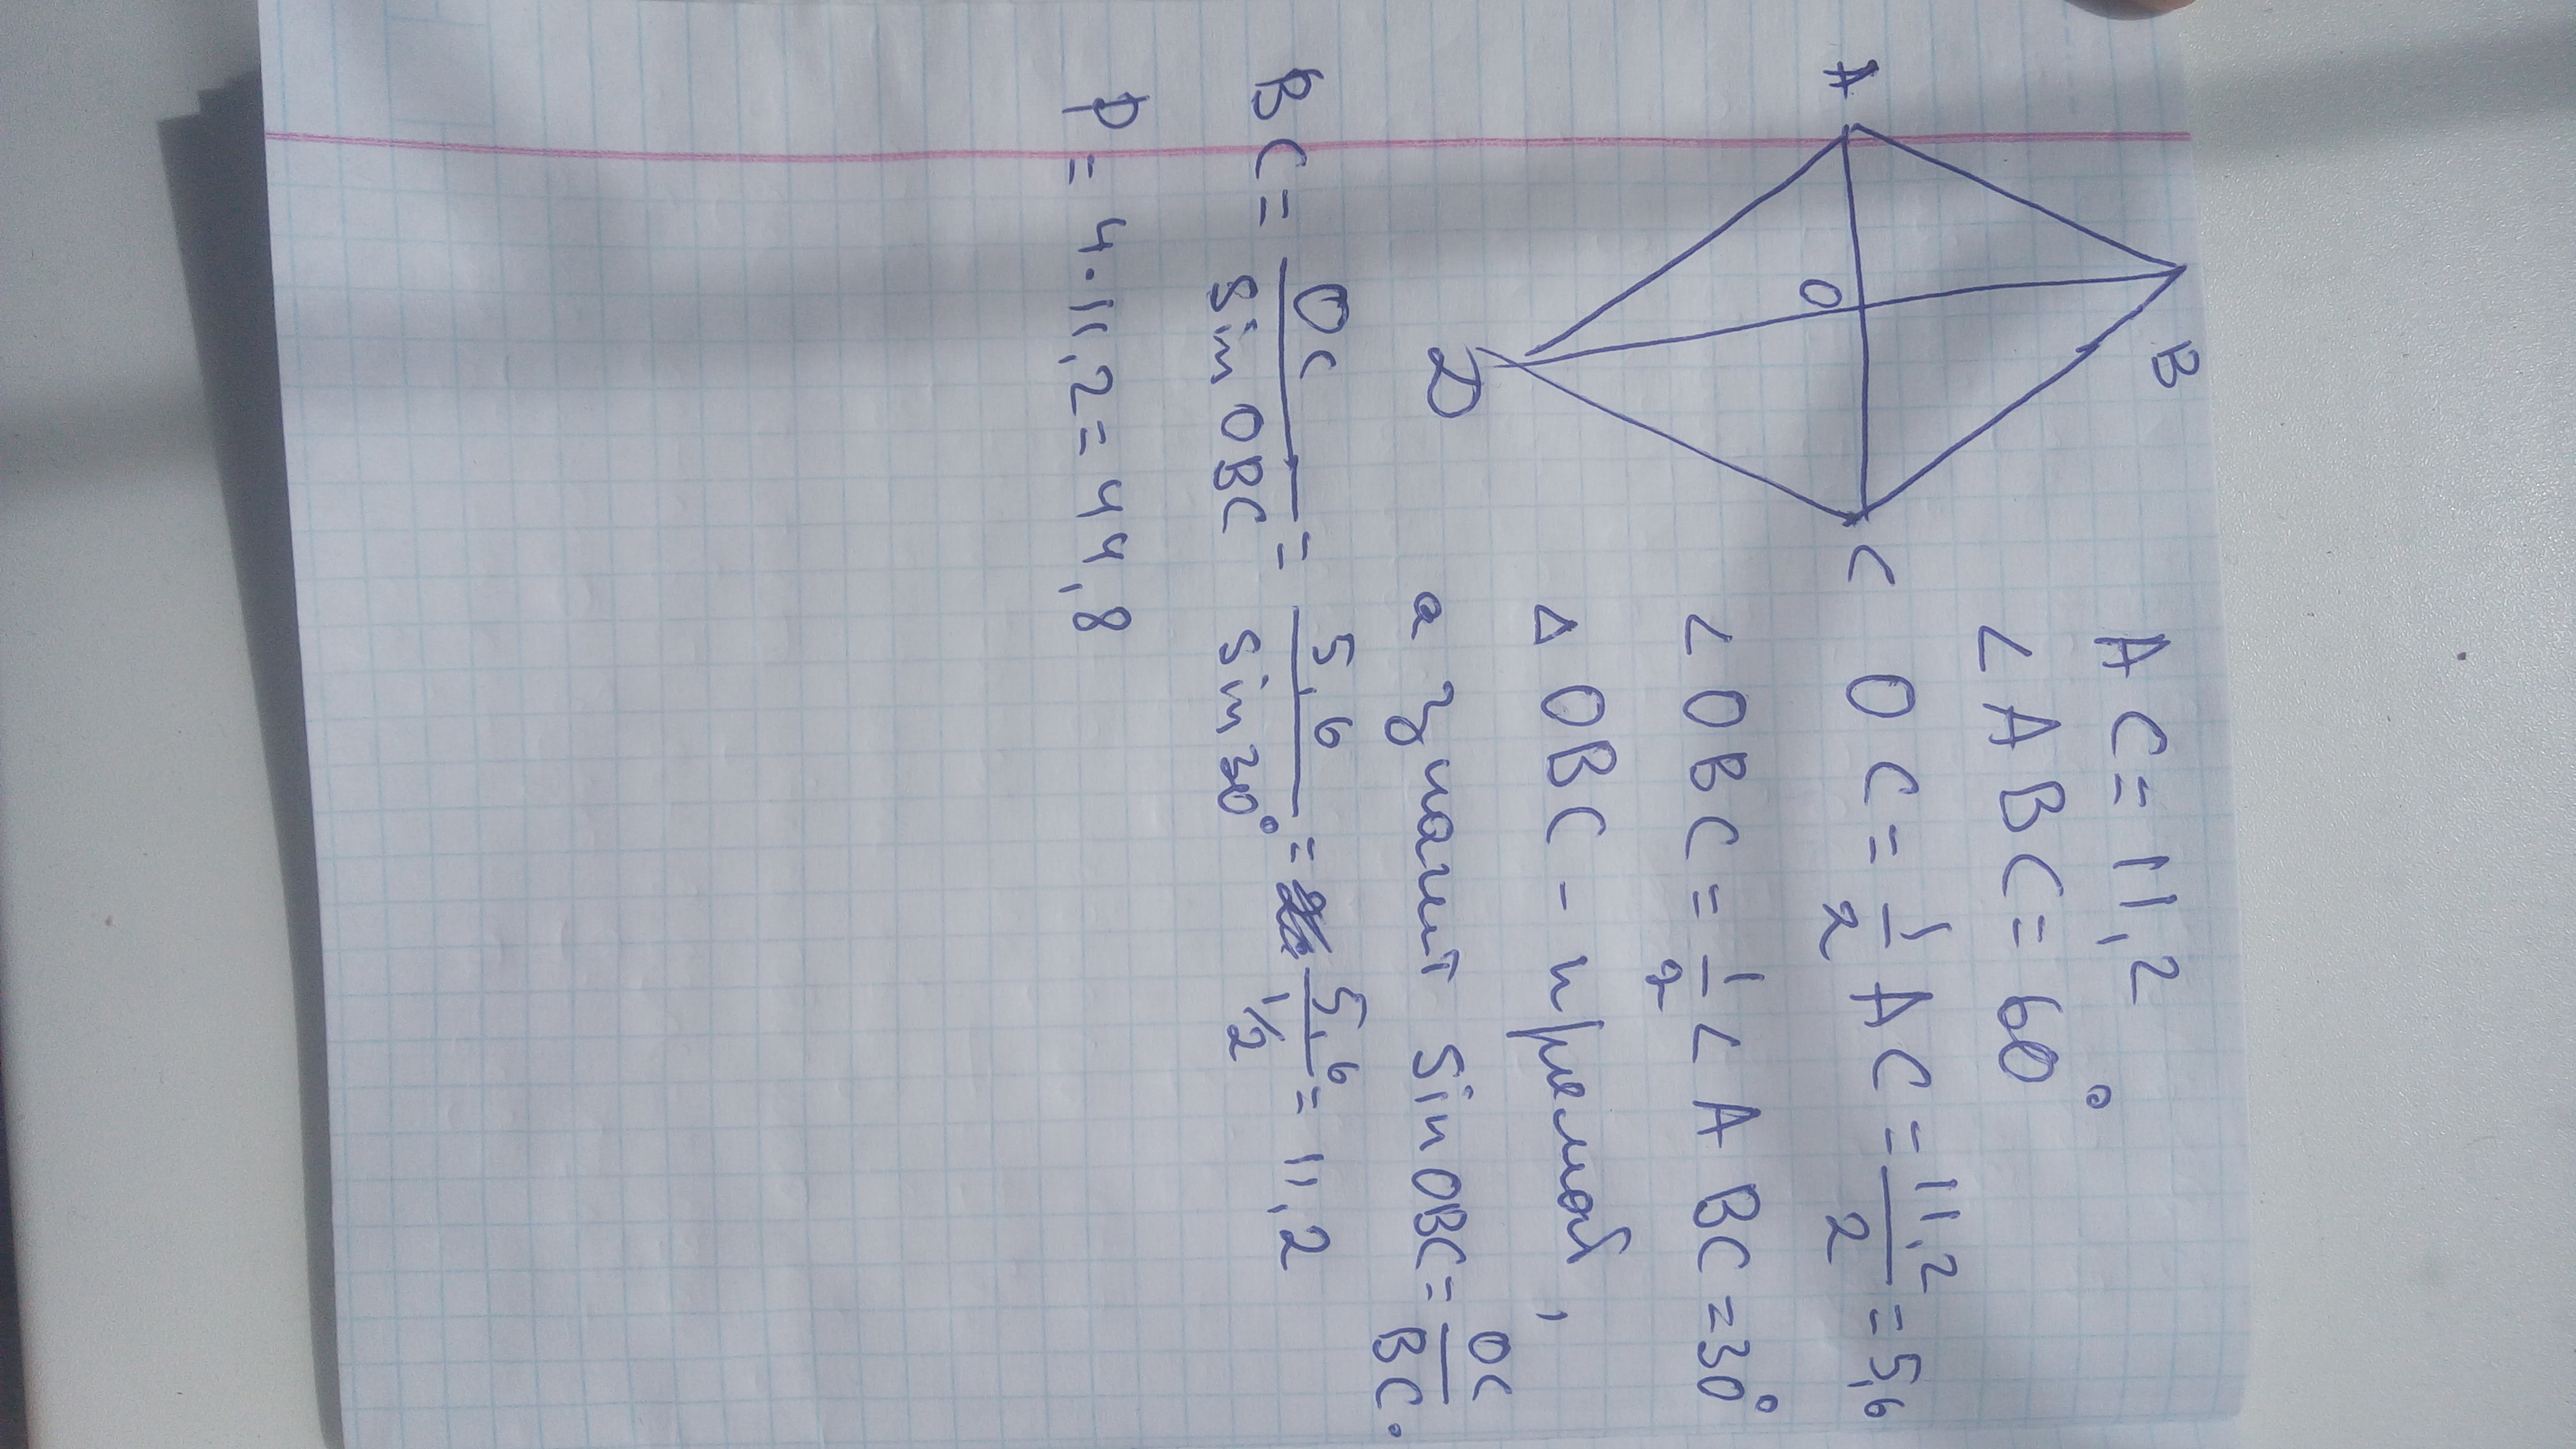 B
A
O
C
D
AC = 11,2
∠ABC = 60°
OC = 1/2 AC = 11,2/2 = 5,6
∠OBC = 1/2 ∠ABC = 30°
△OBC - прямоб,
а значит sin OBC = OC/BC.
BC = OC/sin OBC = 5,6/sin 30° = 5,6/1/2 = 11,2
P = 4·11,2 = 44,8